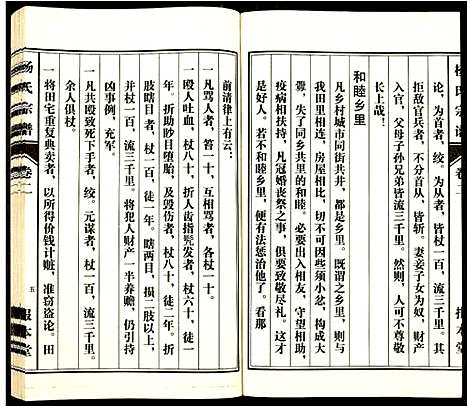 杨氏宗谱 卷二 报本堂
论，为首者，绞。为从者，杖一百，流三千里。其
拒敌官兵者，不分首从，皆斩。妻妾子女为奴，财产
入官，父母子孙兄弟皆流三千里。然则，人可不尊敬
长上哉！
和睦乡里
凡乡村城市同街共井，都是乡里。既谓之乡里，
我田里相连，房屋相比，不可因些须小忿，构成大
衅，必要念了同乡共井的里邻，出入相友，守望相助，
疫病相扶持，凡冠婚丧祭之事，俱要致敬尽礼。这才
是和睦乡里。若不和睦乡里，便有法惩治他了。看那
前清律上有云：
一凡骂人者，笞一十，互相骂者，各杖一十。
一殴人吐血，杖八十，折人齿指髡发者，杖六十，徒一
年。折肋眇目堕胎，及毁伤者，杖八十，徒二年。折
肢瞎目者，杖一百，徒一年。瞎两目，损二肢以上，
并杖一百，流三千里。将犯人财产一半养赡，仍引持
凶事例，充军。
一凡共殴致死下手者，绞。元谋者，杖一百，流三千里。
余人俱杖。
一将田宅重复典卖者，以所得价钱计赃，准窃盗论。田
杨氏宗谱 卷二 五 报本堂